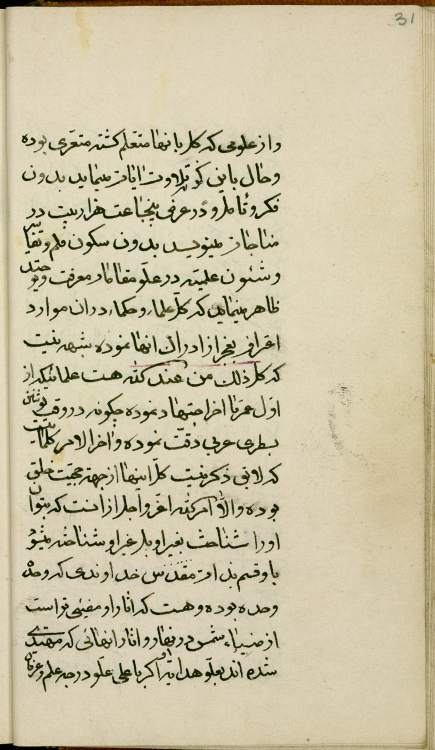 31
و از علومی که کل بآنها متعلم گشته متعری بوده
و حال باین گونه تلاوت آیات مینماید بدون
فکر و تامل و در عرض پنج ساعت هزار بیت در
مناجات مینویسد بدون سکون قلم و تفاسیر
و شئون علمیه در علو مقامات معرفت و توحید
ظاهر مینماید که کل علماء و حکماء در آن موارد
اعتراف بعجز از ادراک آنها نموده شبهه نیست
که کل ذلک من عند الله هست علمائیکه از
اول عمر تا آخر اجتهاد نموده چگونه در وقت نوشتن
سطری عربی دقت نموده و آخر الامر کلماتیست
که لایق ذکر نیست کل اینها از جهة حجیت خلق
بوده و الا امر الله اعز و اجل از انست که بتوان
او را شناخت بغیر او بل غیر او شناخته میشود
باو قسم بذات مقدس خداوندی که وحده
وحده بوده و هست که آثار او مضیئ تر است
از ضیاء شمس در نهار و آثار آنهائی که مهتدی
شده اند بعلو هدایة او اگر باعلی علو درجه علم و عرفان